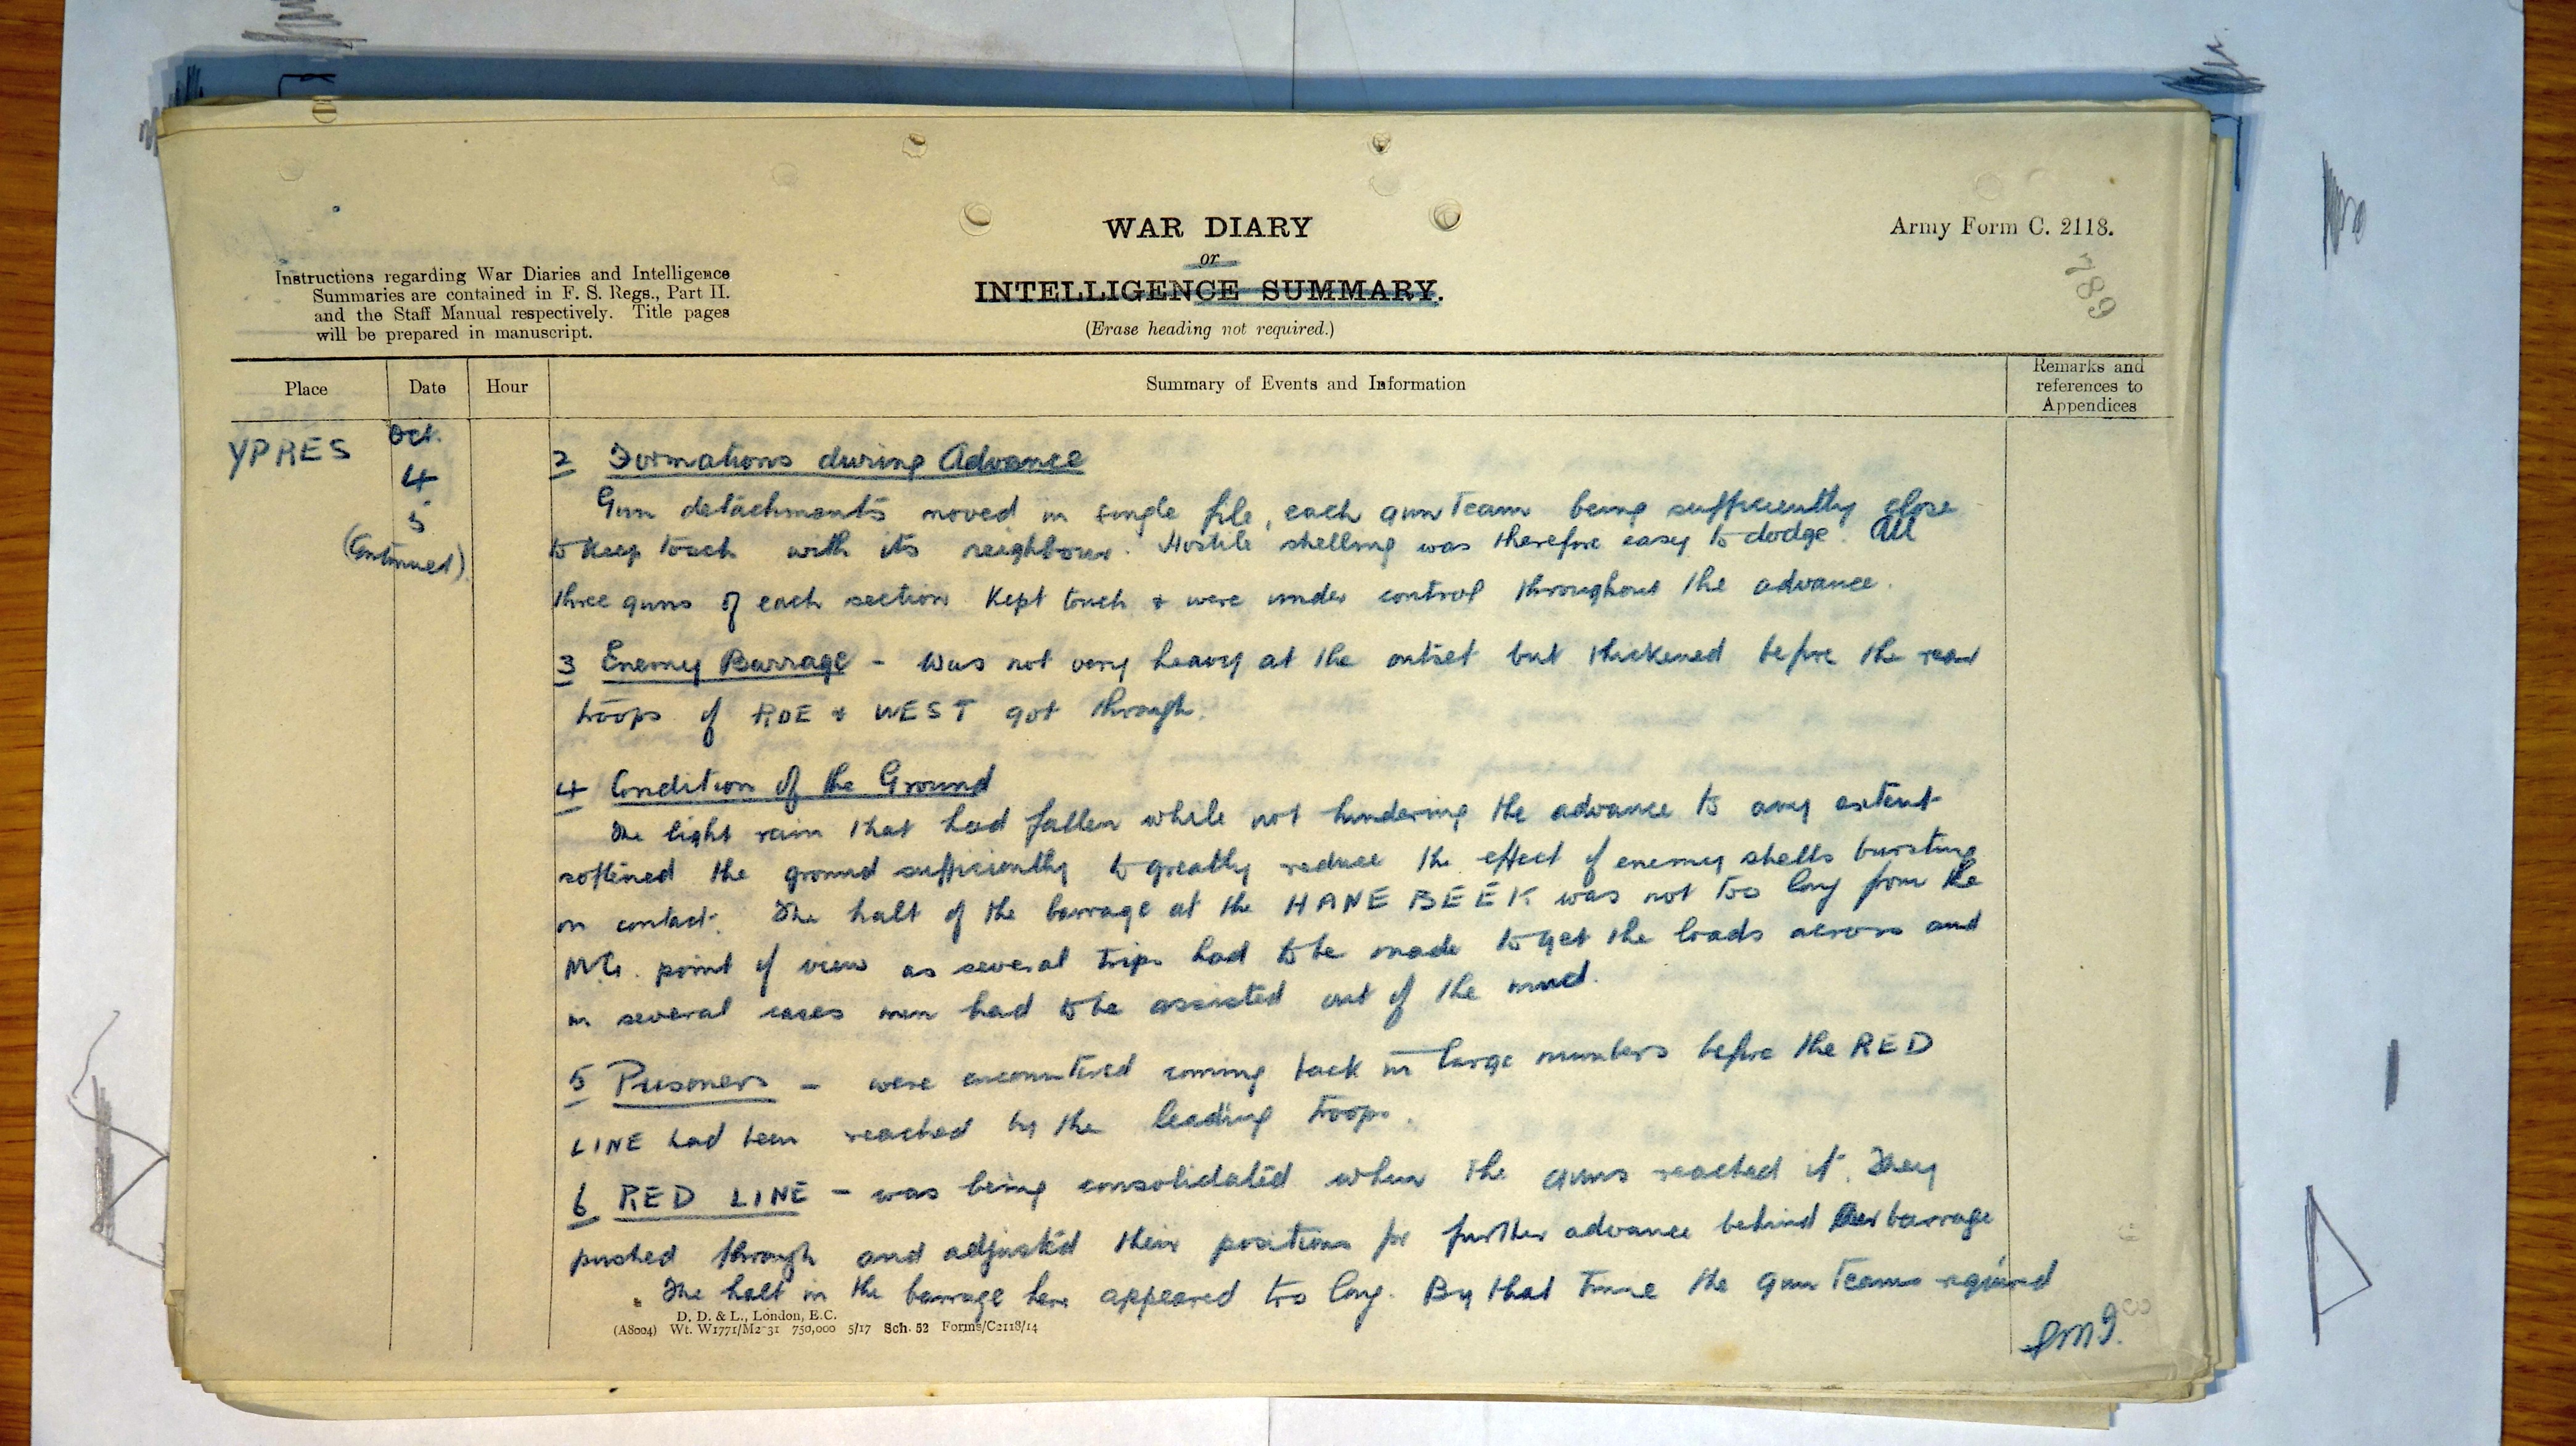 WAR DIARY
or
INTELLIGENCE SUMMARY.
(Erase heading not required.)
Army Form C. 2118.
789
Instructions regarding War Diaries and Intelligence
Summaries are contained in F. S. Regs., Part II.
and the Staff Manual respectively. Title pages
will be prepared in manuscript.
Place
Date
Hour
Summary of Events and Information
Remarks and
references to
Appendices
YPRES
Oct.
4
5
(Continued)
2 Formations during Advance
Gun detachments moved in single file, each gun team being sufficiently close
to keep touch with its neighbour. Hostile shelling was therefore easy to dodge. All
three guns of each section kept touch & were under control throughout the advance.
3 Enemy Barrage - was not very heavy at the outset but thickened before the rear
troops of ROE & WEST got through.
4 Condition of the Ground
The light rain that had fallen while not hindering the advance to any extent
softened the ground sufficiently to greatly reduce the effect of enemy shells bursting
on contact. The halt of the barrage at the HANEBEEK was not too long from the
M.G. point of view as several trips had to be made to get the loads across and
in several cases men had to be assisted out of the mud.
5 Prisoners - were encountered coming back in large numbers before the RED
LINE had been reached by the leading troops.
6 RED LINE - was being consolidated when the guns reached it. They
pushed through and adjusted their positions for further advance behind barrage
The halt in the barrage here appeared too long. By that time the gun teams required
D. D. & L., London, E.C.
(A8004) Wt. W1771/M2-31 750,000 5/17 Sch. 52 Forms/C2118/14